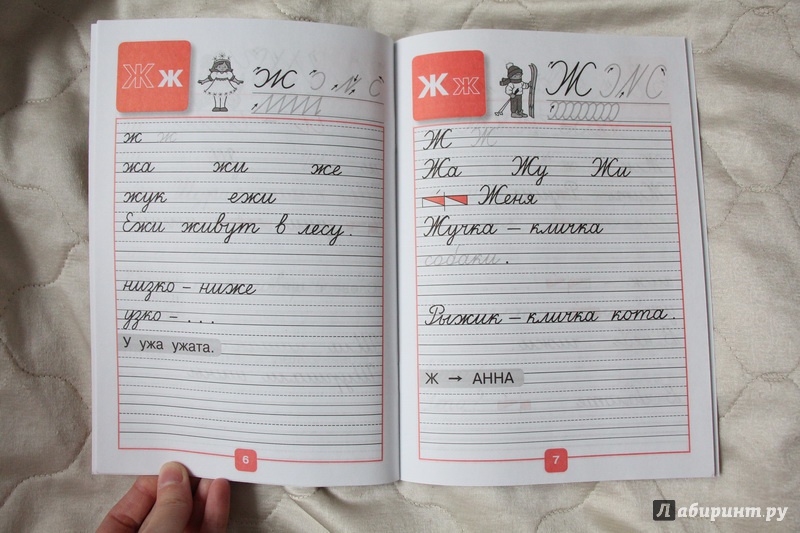 Ж ж
Ж
ж ж
жа жи же
жук ежи
Ежи живут в лесу.
низко – ниже
узко – ...
У ужа ужата.
6
Ж ж
Ж
Ж Ж
Жа Жу Жи
Женя
Жучка – кличка
собаки.
Рыжик – кличка кота.
Ж → АННА
7
Лабиринт.ру